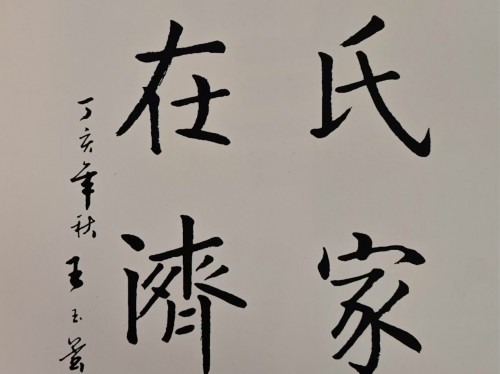 氏家
在濟
丁亥年秋 王玉